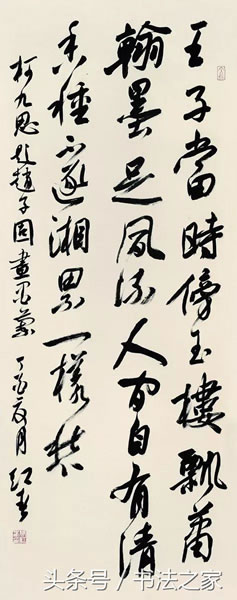 王子當時傍玉樓飄蕭
翰墨足風流人間自有清
香種不逐湘累一樣愁
柯九思題趙子固畫墨蘭 丁 夏月
头条号 / 书法之家